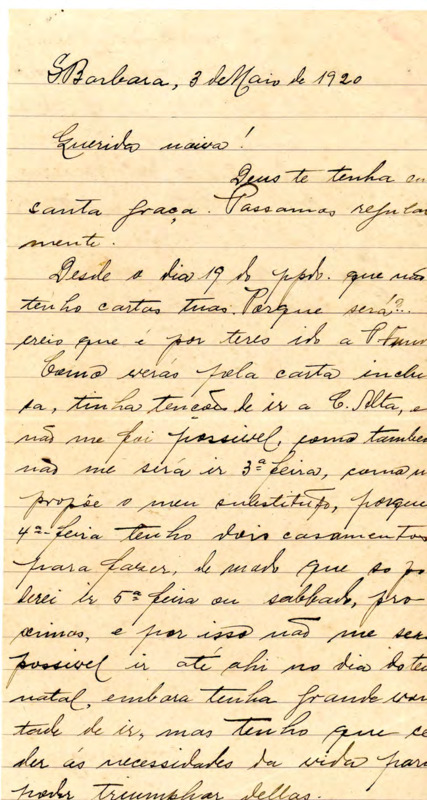 S. Barbara, 3 de Maio de 1920
Querida noiva!
Deus te tenha em
santa graça. Passamos regular
mente.
Desde o dia 19 do ppdo. que não
tenho cartas tuas. Porque será?...
creio que é por teres ido a P.
Como verás pela carta inclu
sa, tinha tenções de ir a C. Alta, e
não me foi possivel, como tambem
não me será ir 3ª feira, como
propõe o meu substituto, porque
4ª feira tenho dois casamentos
para fazer, de modo que so po
derei ir 5ª feira ou sabbado, pro-
ximos, e por isso não me será
possivel ir até ahi no dia do teu
natal, embora tenha grande von
tade de ir, mas tenho que ce
der ás necessidades da vida para
poder triumphar dellas.